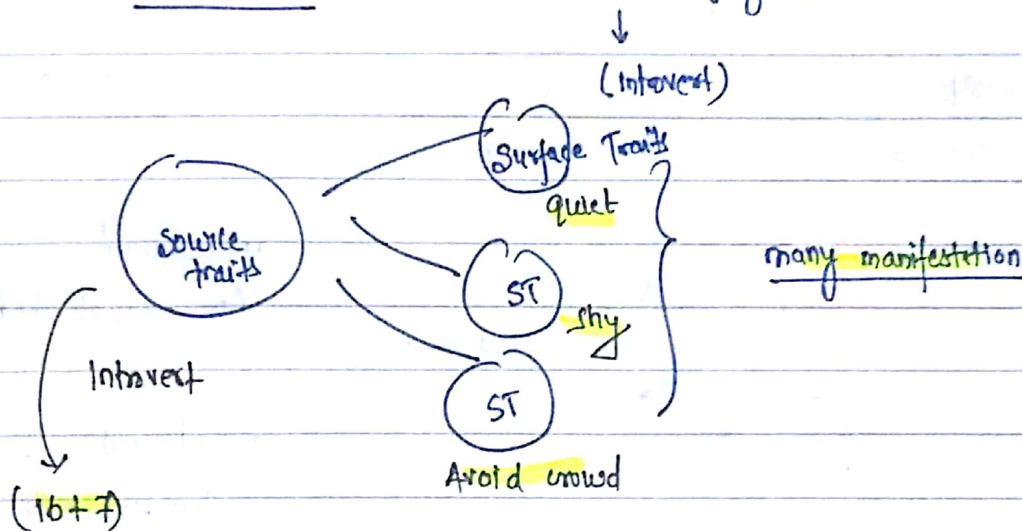 (Introvert)
Surface Traits
quiet
Source
traits
many manifestation
ST
shy
Introvert
ST
Avoid crowd
(16+7)